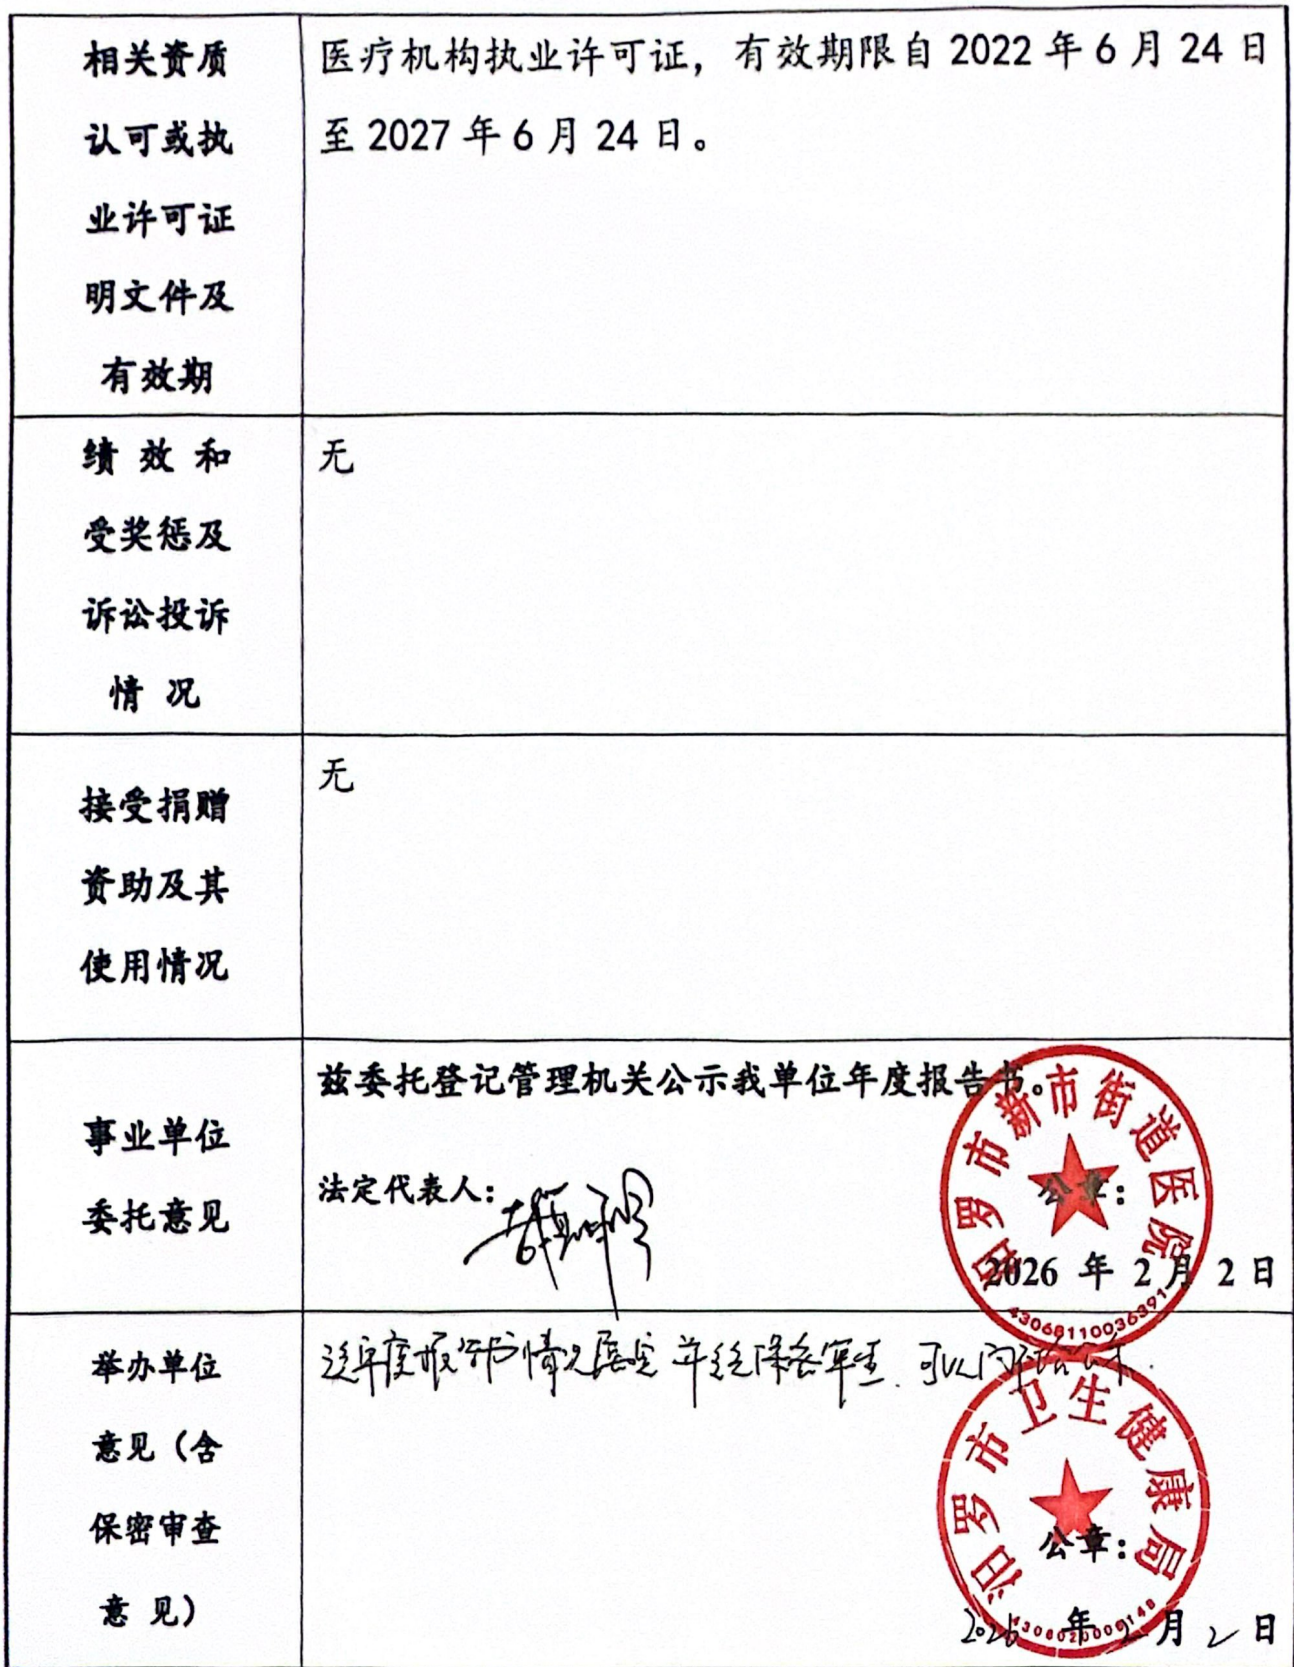 相关资质
认可或执
业许可证
明文件及
有效期
医疗机构执业许可证，有效期限自 2022 年 6 月 24 日
至 2027 年 6 月 24 日。
绩 效 和
受奖惩及
诉讼投诉
情 况
无
接受捐赠
资助及其
使用情况
无
事业单位
委托意见
兹委托登记管理机关公示我单位年度报告书。
法定代表人：
公章：
2026 年 2 月 2 日
汨罗市新市街道医院
举办单位
意见（含
保密审查
意 见）
该年度报告书情况属实 并经保密审查，可以向社会公示.
汨罗市卫生健康局
公章：
2026 年 2 月 2 日